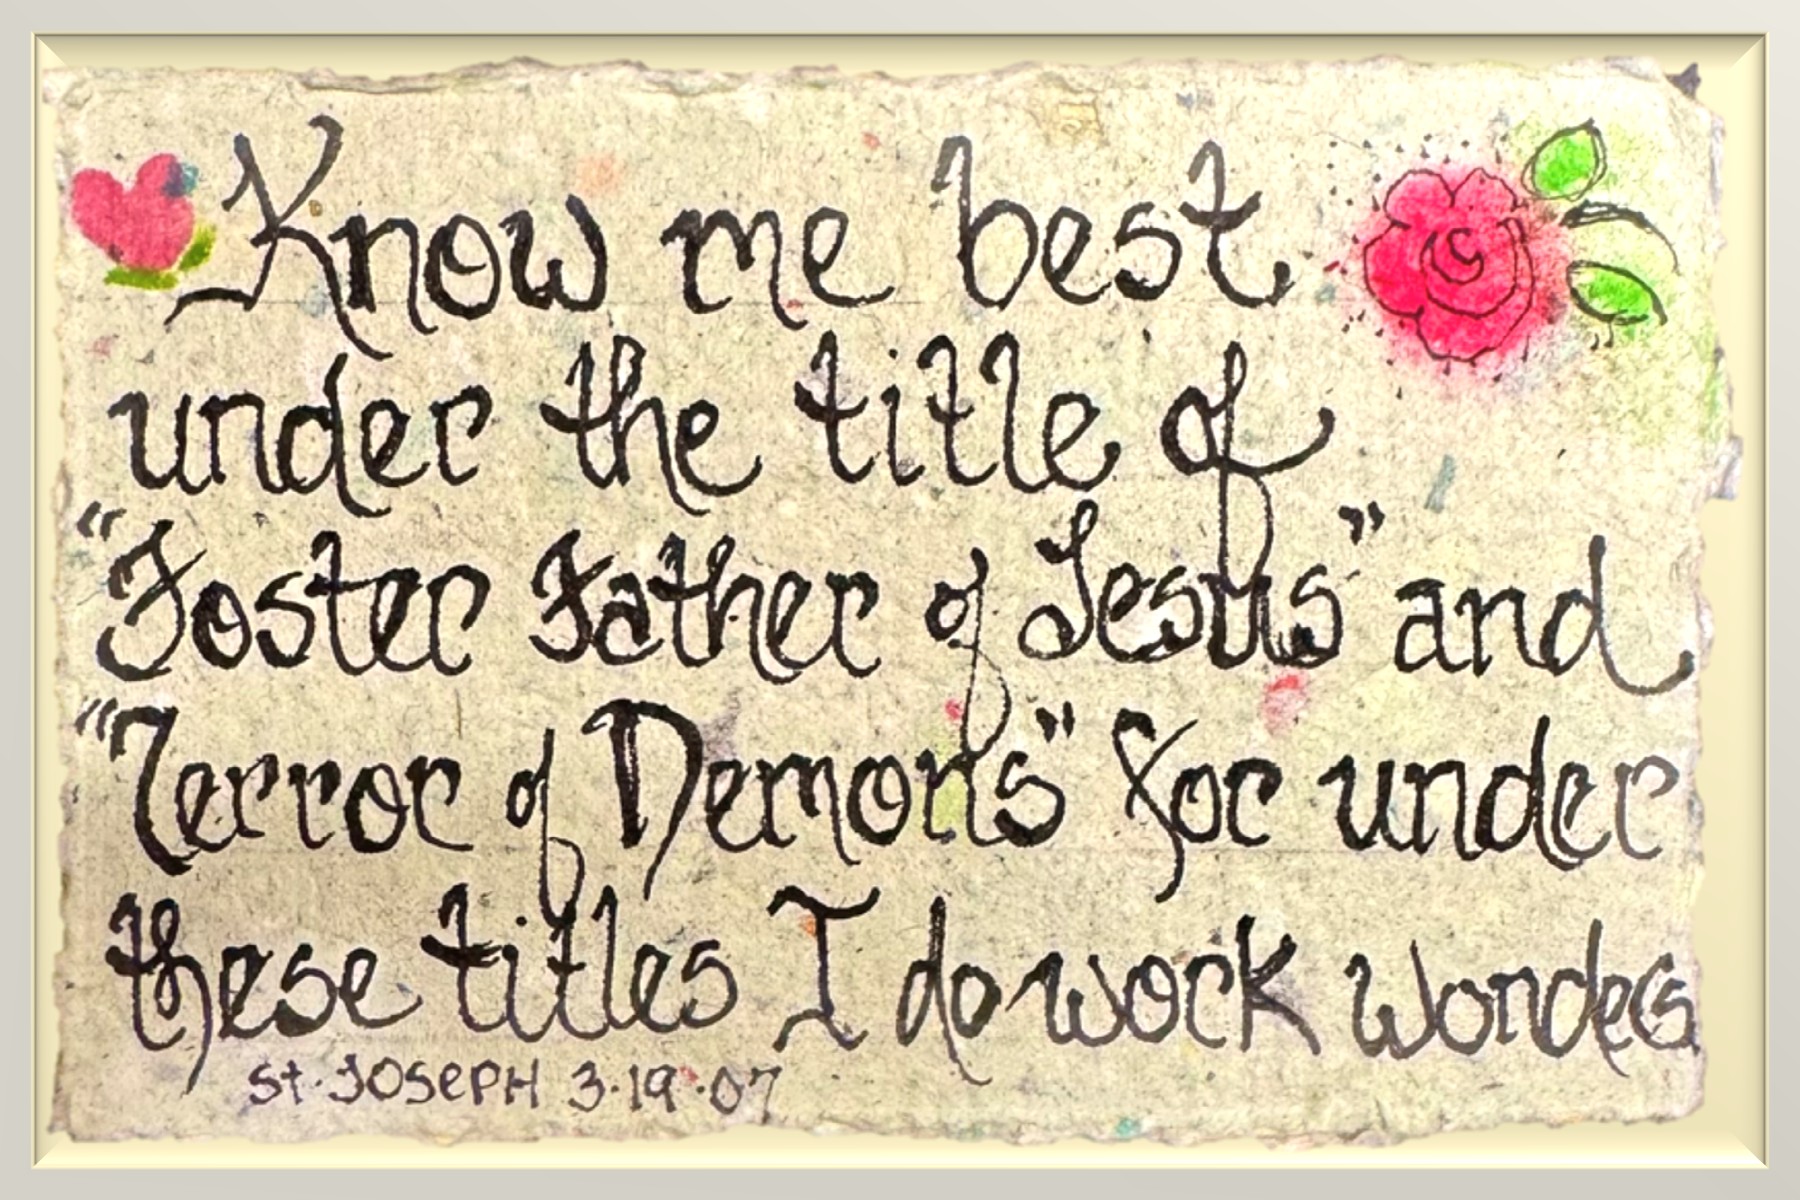 Know me best
under the title of
"Foster Father of Jesus" and
"Terror of Demons" for under
these titles I do work wonders
St. JOSEPH 3.19.07